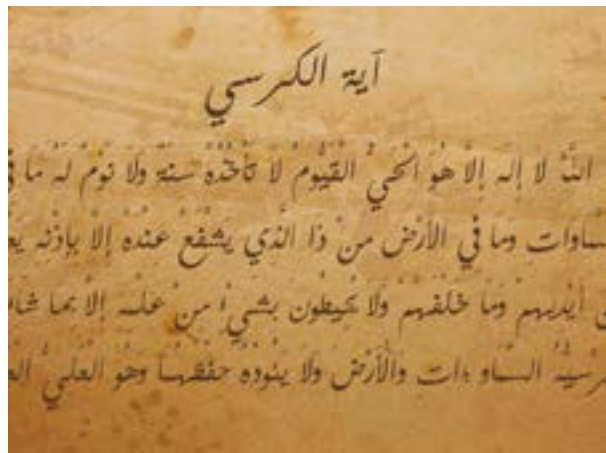 آية الكرسي
اللهُ لا إله إلاَّ هُوَ الْحَيُّ القَيُّومُ لا تَأْخُذُهُ سِنَة ولا نَومٌ لَهُ مَا في
ـماوات وما في الأَرْضِ مَنْ ذَا الَّذِي يَشْفَعُ عندَهُ إلاَّ بِإِذْنِهِ يَعـ
ـن أيْدِيهِمْ وَمَا خَلْفَهُمْ ولا يُحيطُون بِشَيءٍ منْ علمـه إلاَّ بما شاء
ـرسيُّهُ السماوات والأَرْض ولا يَئُودُهُ حفْظُهُـما وهُوَ العَليُّ العـ